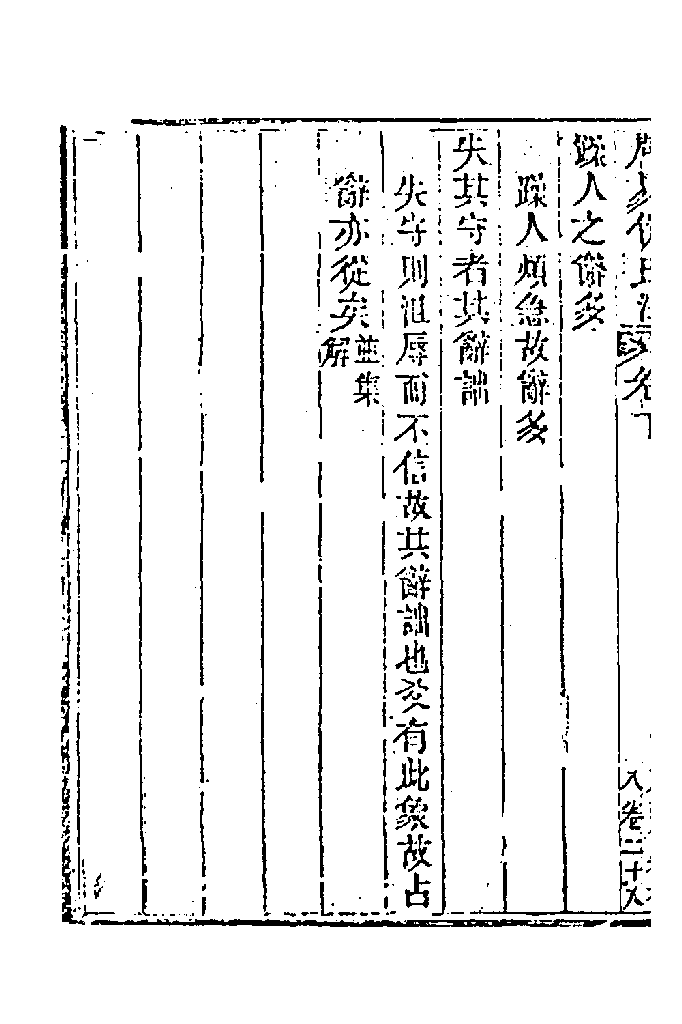 周易侯氏注
卷二十八
躁人之辭多
躁人煩急故辭多
失其守者其辭詘
失守則沮辱而不信故其辭詘也爻有此象故占
辭亦從矣並集解